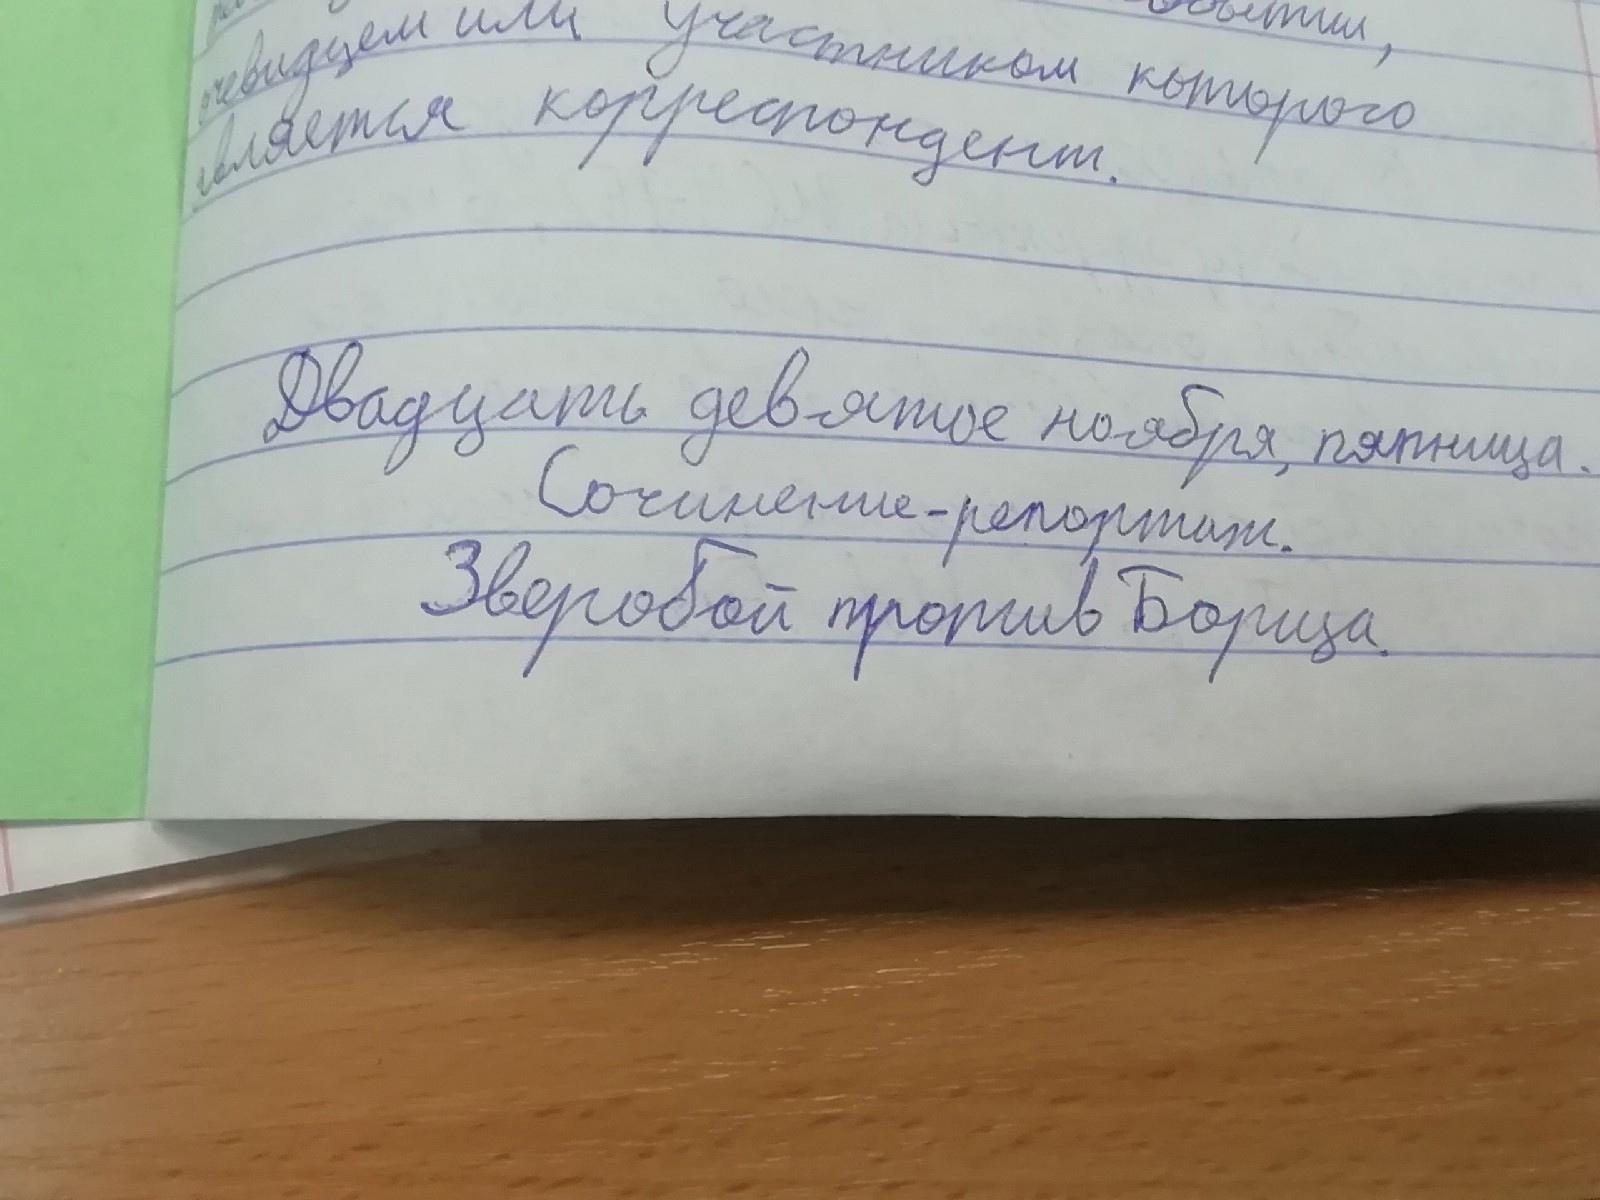 событии,
очевидцем или участником которого
является корреспондент.
Двадцать девятое ноября, пятница.
Сочинение-репортаж.
Зверобой против Борща.